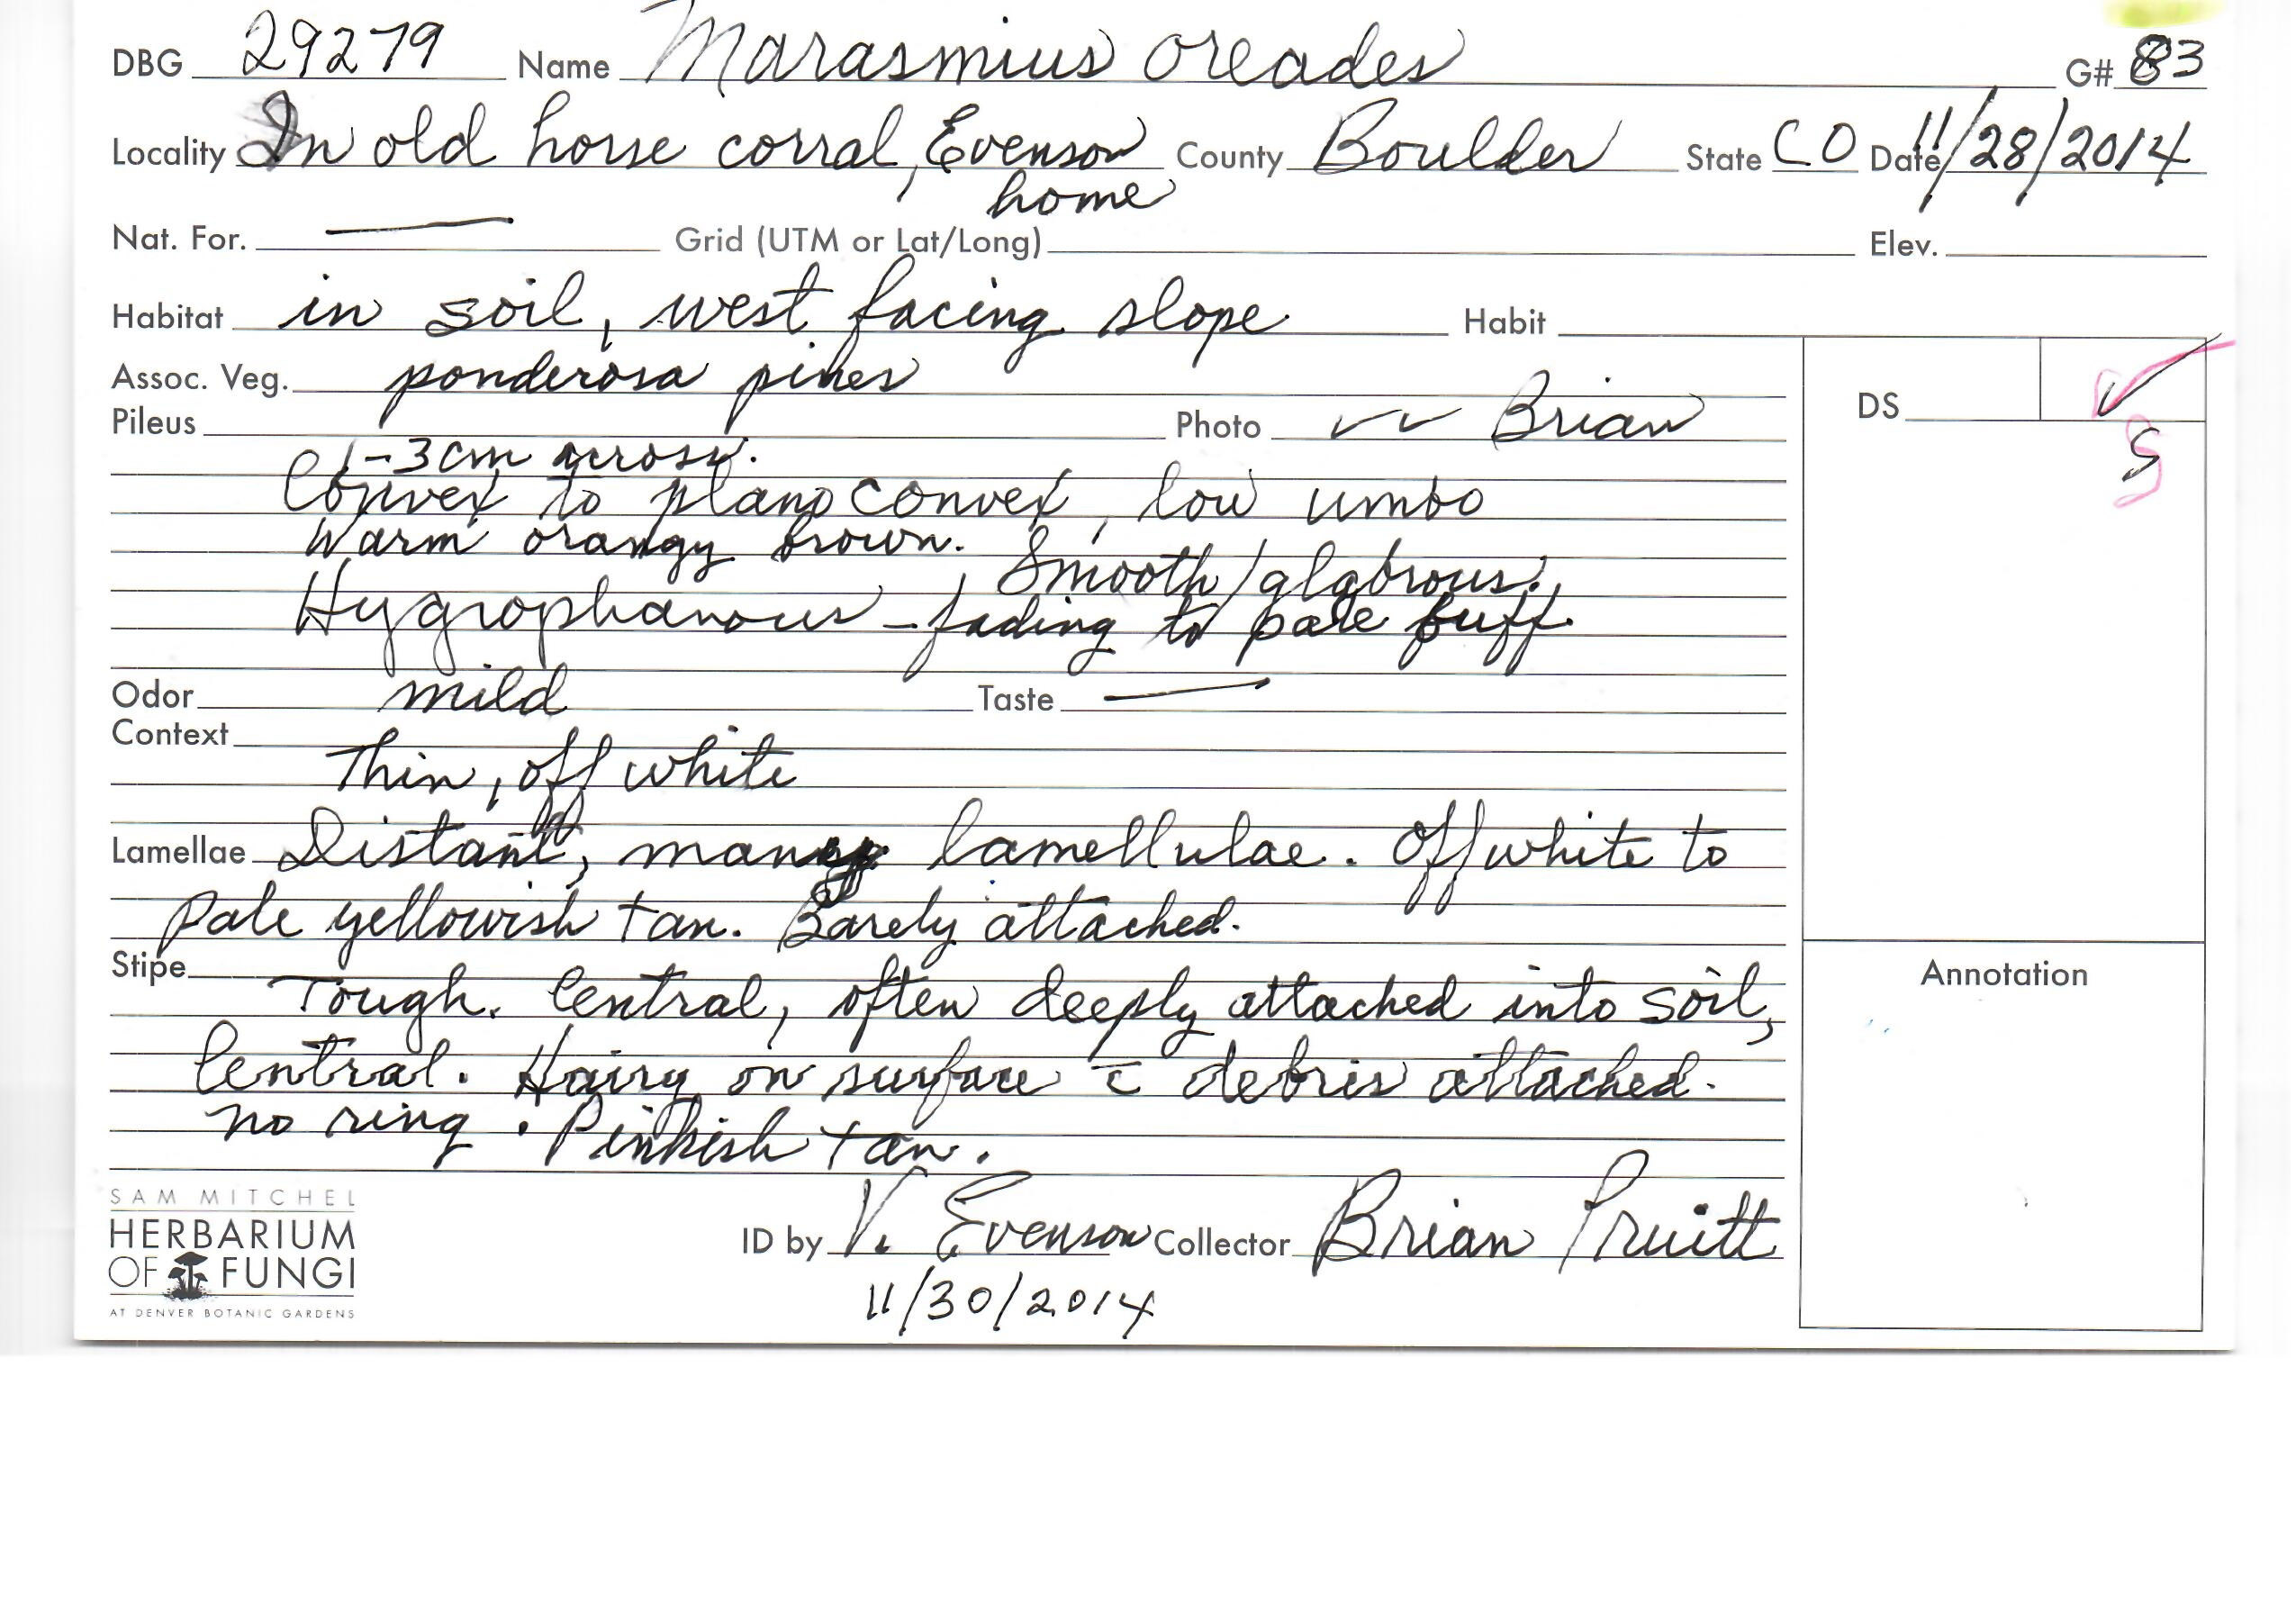 DBG 29279 Name Marasmius oreades G# 83
Locality In old horse corral, Evenson County Boulder State CO Date 11/28/2014
home
Nat. For. — Grid (UTM or Lat/Long) Elev.
Habitat in soil, west facing slope Habit
Assoc. Veg. ponderosa pines
Pileus Photo ✓✓ Brian DS ✓
1-3 cm across. S
Convex to plano convex, low umbo
Warm orangy brown. Smooth/glabrous.
Hygrophanous - fading to pale buff.
Odor mild Taste —
Context
Thin, off white
Lamellae Distant, many lamellulae. Off white to
pale yellowish tan. Barely attached.
Stipe Annotation
Tough. Central, often deeply attached into soil,
Central. Hairy on surface c̄ debris attached.
no ring. Pinkish tan.
SAM MITCHEL
HERBARIUM
OF FUNGI
AT DENVER BOTANIC GARDENS
ID by V. Evenson Collector Brian Pruitt
11/30/2014